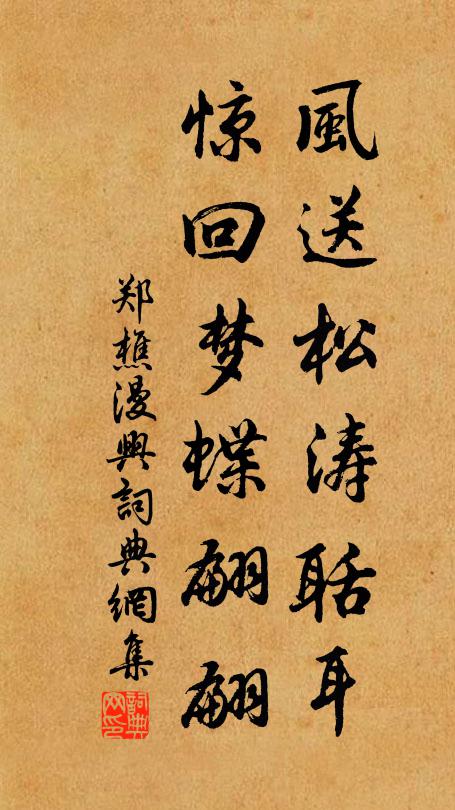 風送松涛聒耳
惊回梦蝶翩翩
郑樵漫興詞典網集
詞典
网印